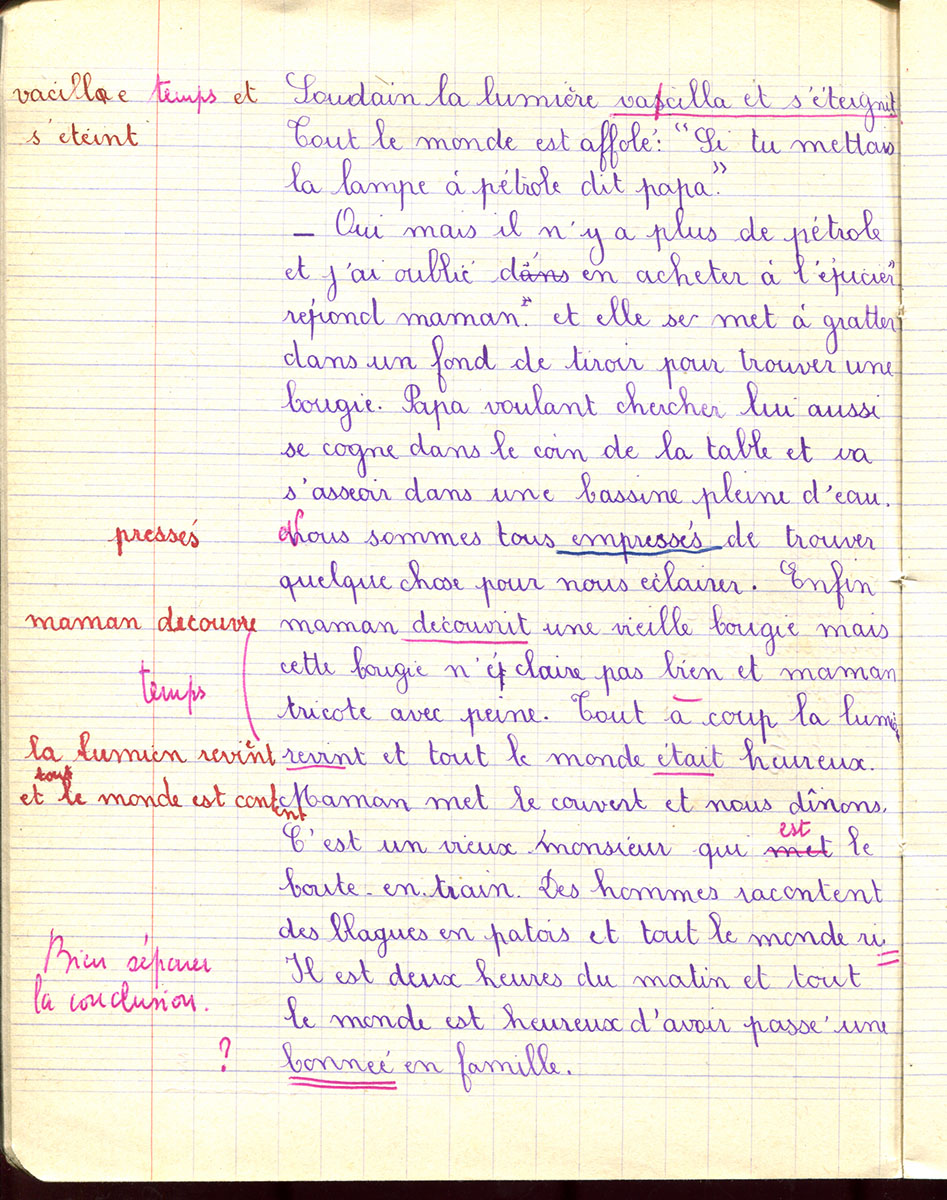 vacille temps et Soudain la lumière vascilla et s'éteignit
s'éteint Tout le monde est affolé: "Si tu mettais
la lampe à pétrole dit papa".
_ Oui mais il n'y a plus de pétrole
et j'ai oublié dans en acheter à l'épicier"
répond maman." et elle se met à gratter
dans un fond de tiroir pour trouver une
bougie. Papa voulant chercher lui aussi
se cogne dans le coin de la table et va
s'asseoir dans une bassine pleine d'eau.
pressés Nous sommes tous empressés de trouver
quelque chose pour nous eclairer. Enfin
maman decouvre maman decouvrit une vieille bougie mais
cette bougie n'éclaire pas bien et maman
temps tricote avec peine. Tout à coup la lumiè
la lumièn revint revint et tout le monde était heureux.
et tout le monde est content Maman met le couvert et nous dînons.
C'est un vieux monsieur qui met est le
boute-en-train. Des hommes racontent
des blagues en patois et tout le monde ri
Bien séparer la conclusion. Il est deux heures du matin et tout
le monde est heureux d'avoir passé une
? bonneé en famille.